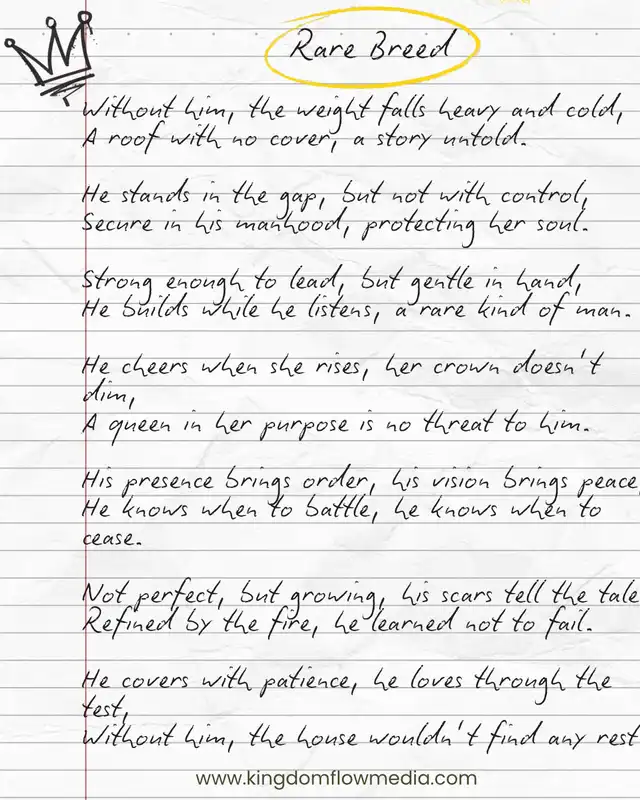 Rare Breed
Without him, the weight falls heavy and cold,
A roof with no cover, a story untold.
He stands in the gap, but not with control,
Secure in his manhood, protecting her soul.
Strong enough to lead, but gentle in hand,
He builds while he listens, a rare kind of man.
He cheers when she rises, her crown doesn't
dim,
A queen in her purpose is no threat to him.
His presence brings order, his vision brings peace
He knows when to battle, he knows when to
cease.
Not perfect, but growing, his scars tell the tale
Refined by the fire, he learned not to fail.
He covers with patience, he loves through the
test,
Without him, the house wouldn't find any rest
www.kingdomflowmedia.com